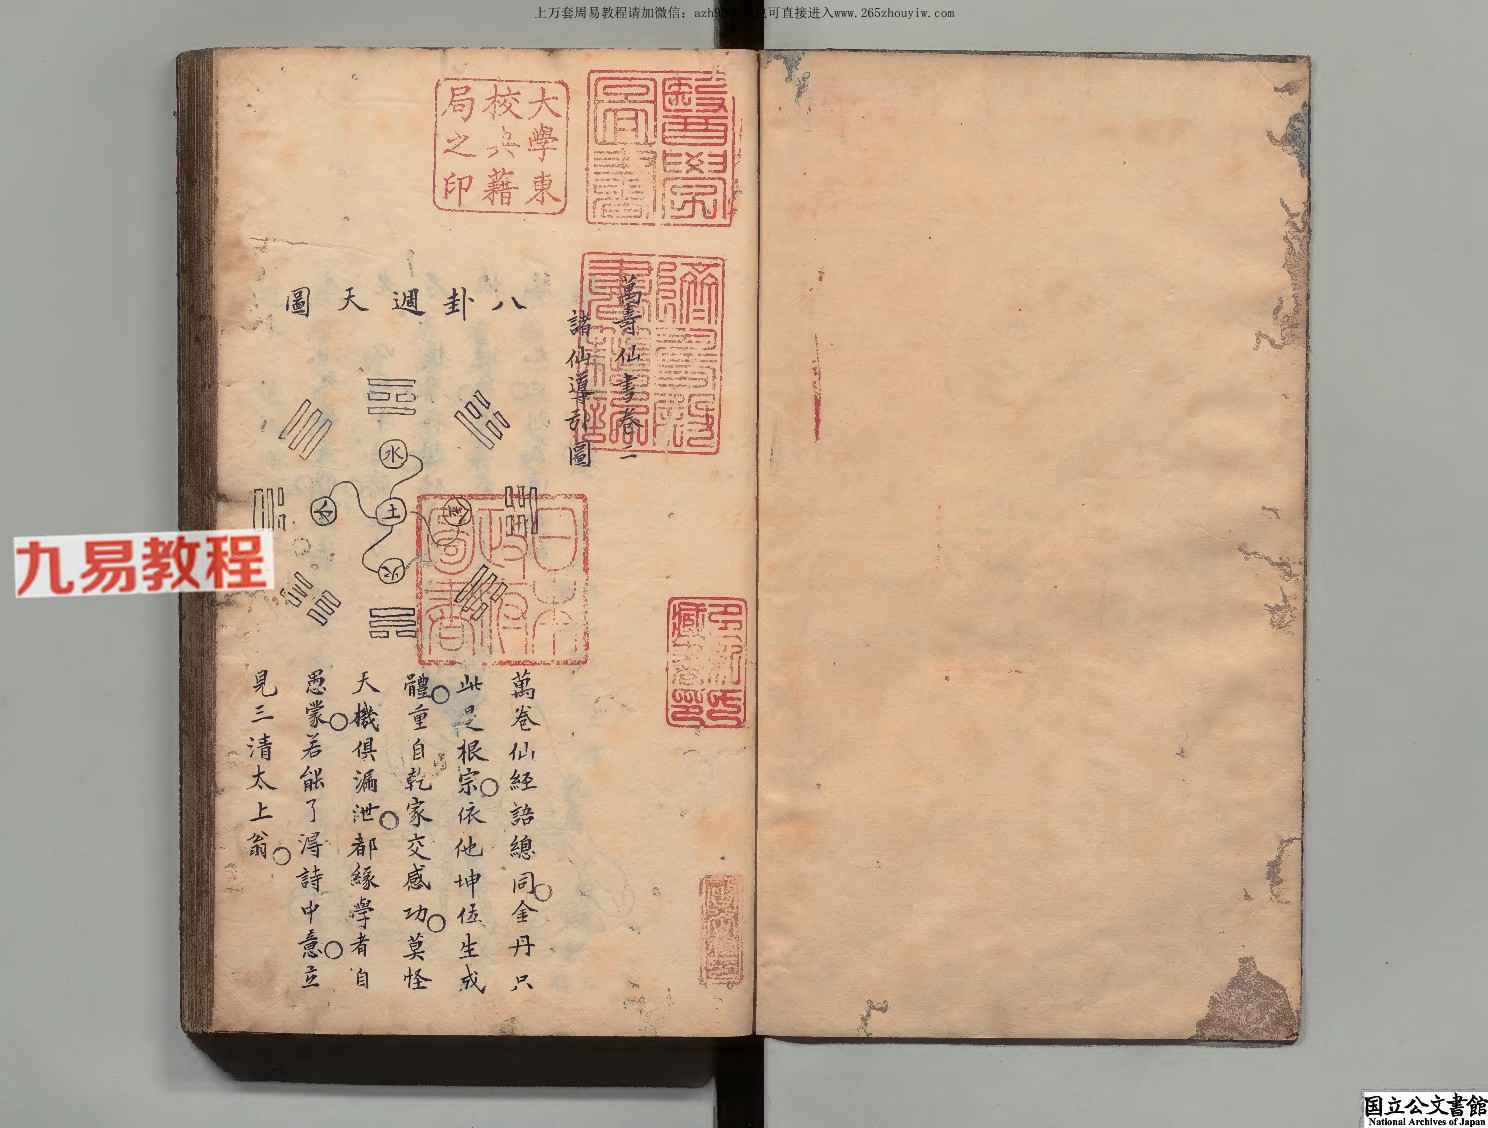 上万套周易教程请加微信：azh9 可直接进入www.265zhouyiw.com
大學東
校典藉
局之印
醫學
圖書
萬壽仙書卷二
諸仙導引圖
八卦週天圖
水
土
金
火
木
日本
政府
圖書
萬卷仙經語總同金丹只
此是根宗依他坤位生成
體重自乾家交感功莫怪
天機俱漏泄都緣學者自
愚蒙若能了得詩中意立
見三清太上翁
九易教程
国立公文書館
National Archives of Japan